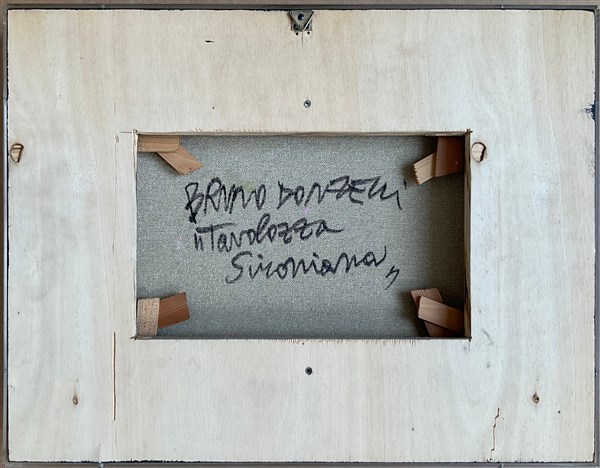 BRUNO DONZELLI
"Tavolozza
Sironiana"